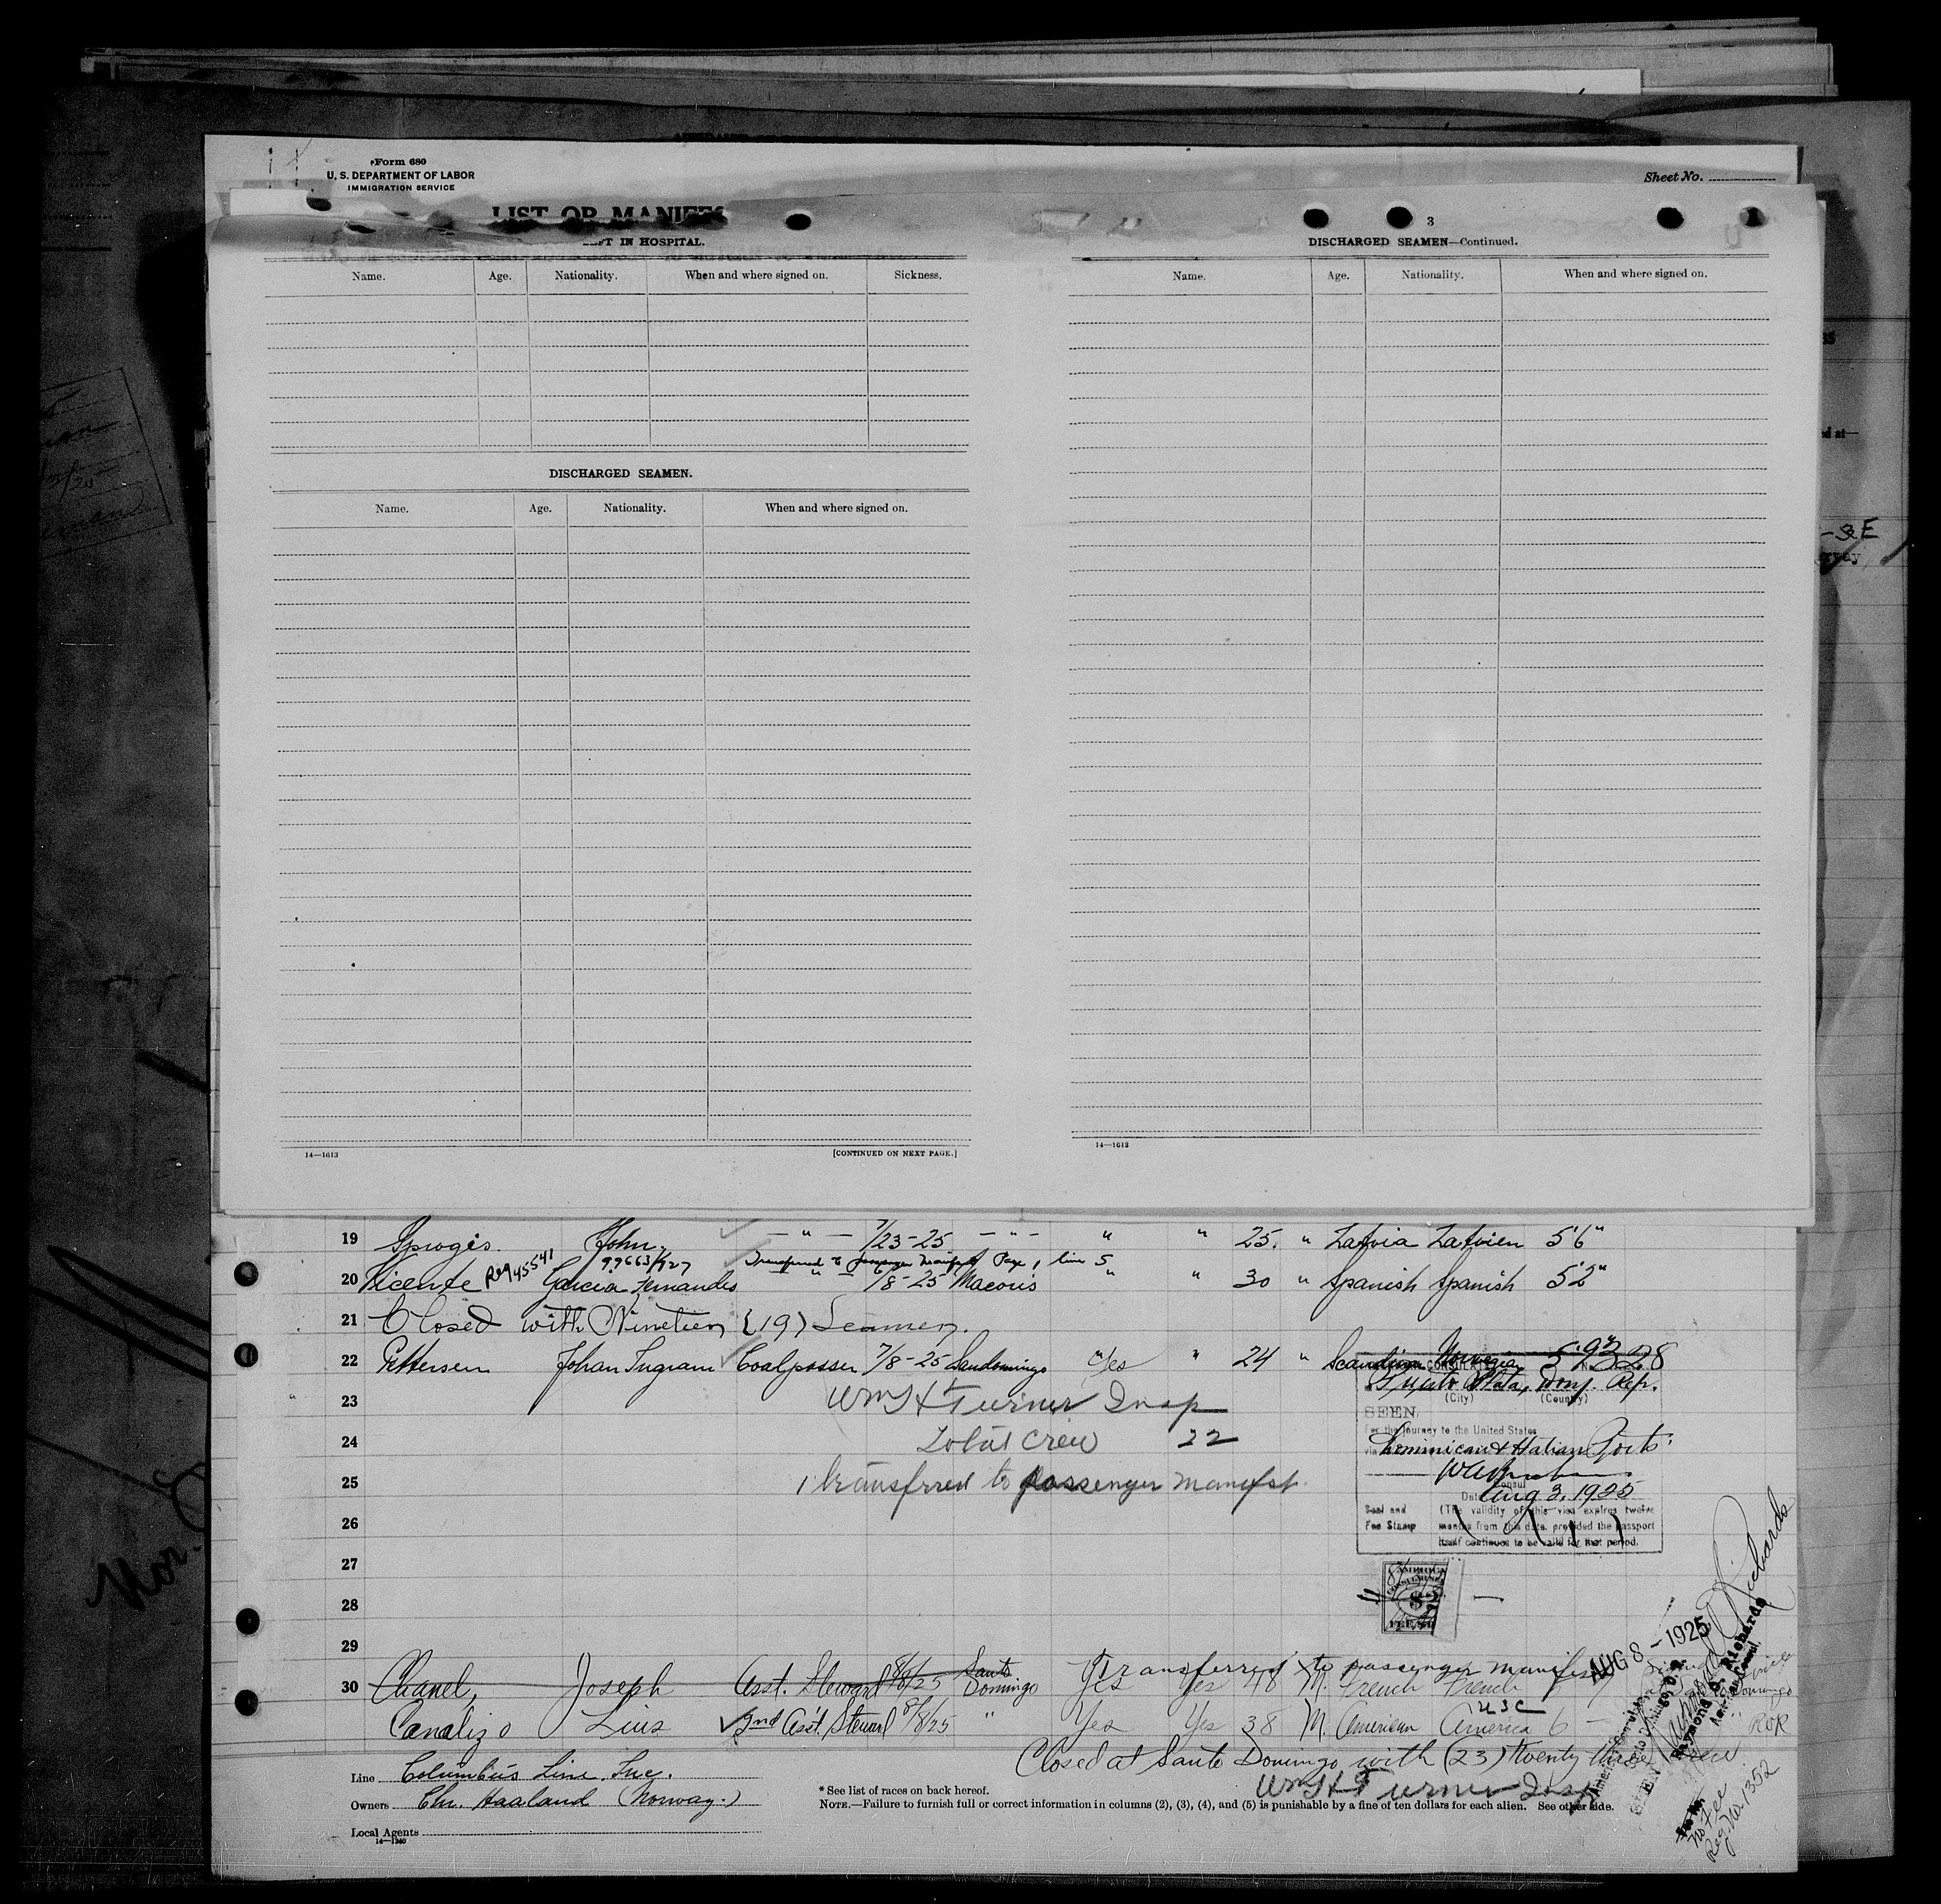 Form 680
U. S. DEPARTMENT OF LABOR
IMMIGRATION SERVICE
Sheet No.
LIST OR MANIFES
3
FT IN HOSPITAL.
Name. Age. Nationality. When and where signed on. Sickness.
DISCHARGED SEAMEN.
Name. Age. Nationality. When and where signed on.
14—1613
[CONTINUED ON NEXT PAGE.]
DISCHARGED SEAMEN—Continued.
Name. Age. Nationality. When and where signed on.
14—1613
19 Sprogis. John. — " — 7/23-25 — " — " " 25. " Latvia Latvien 5'6"
Reg 45541 99663/927 Transferred to passenger manifest Page 1, line 5
20 Vicente Garcia Fernandes " 7/8-25 Macoris " " 30 " Spanish Spanish 5'2"
21 Closed with Nineteen (19) Seamen.
22 Pettersen Johan Ingram Coalpasser 7/8-25 Sandomingo Yes " 24 "
23 Wm H Turner Insp
24 Total Crew 22
25 1 transferred to passenger manifst.
26
27
28
29
328
Puerto Plata, Dom. Rep.
(City) (Country)
SEEN
For the journey to the United States
via Dominican & Haitian Ports
Consul
Date Aug 3, 1925
Seal and
Fee Stamp
(The validity of this visa expires twelve
months from this date, provided the passport
itself continues to be valid for that period.
$2
Transferred to passenger manifest
30 Chanel, Joseph Asst. Steward 8/8/25 Santo Domingo Yes Yes 48 M. French French
USC
Canalizo Luis 2nd Asst. Steward 8/8/25 " Yes Yes 38 M. American America 6 —
AUG 8 - 1925
SEEN
Raymond D. Richards
American Consul
No Fee
Reg. No. 1352
Closed at Santo Domingo with (23) twenty three crew
Wm H Turner Insp
Line Columbus Line, Inc.
Owners Chr. Haaland (Norway.)
Local Agents
14—1240
* See list of races on back hereof.
NOTE.—Failure to furnish full or correct information in columns (2), (3), (4), and (5) is punishable by a fine of ten dollars for each alien. See other side.
Nor.